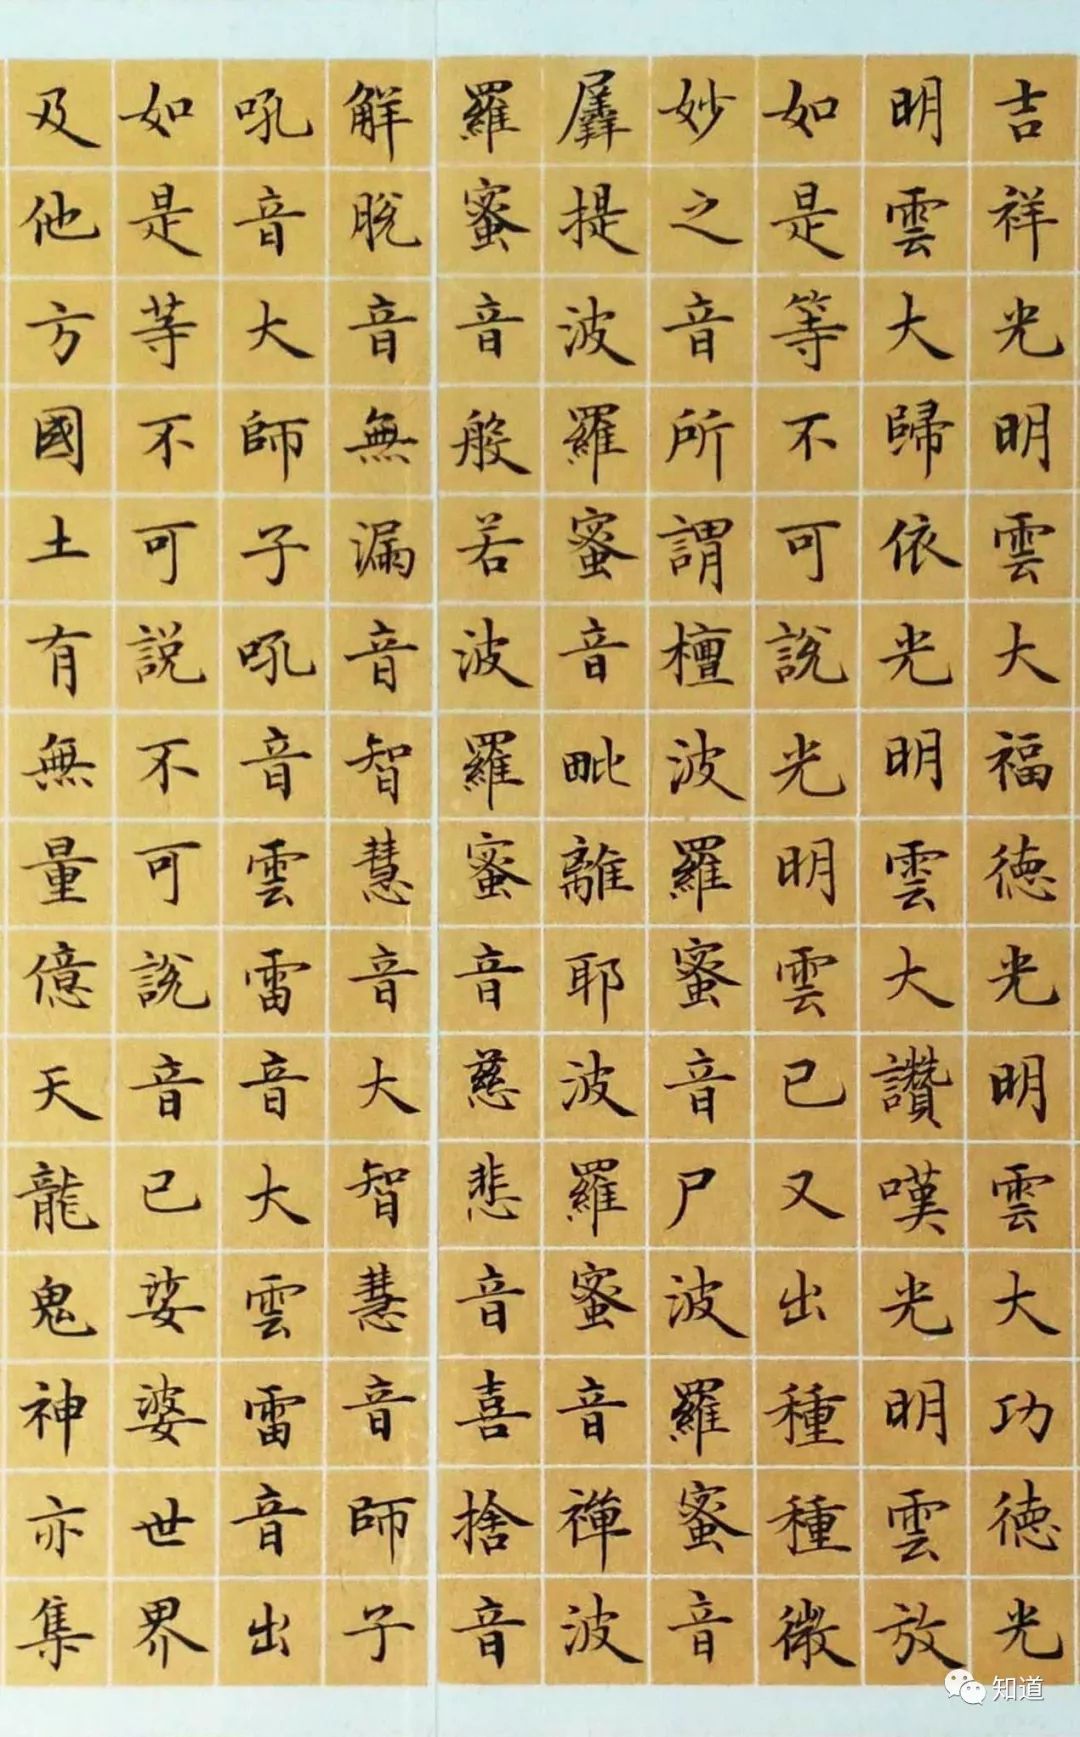 吉祥光明雲大福德光明雲大功德光
明雲大歸依光明雲大讚嘆光明雲放
如是等不可說光明雲已又出種種微
妙之音所謂檀波羅蜜音尸波羅蜜音
羼提波羅蜜音毗離耶波羅蜜音禪波
羅蜜音般若波羅蜜音慈悲音喜捨音
解脫音無漏音智慧音大智慧音師子
吼音大師子吼音雲雷音大雲雷音出
如是等不可説不可說音已娑婆世界
及他方國土有無量億天龍鬼神亦集
知道